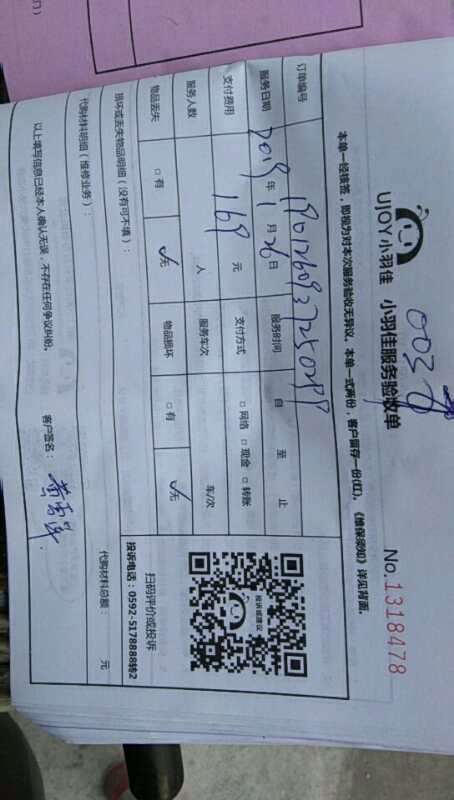 UJOY小羽佳 小羽佳服务验收单
No.1318478
本单一经接签，即视为对本次服务验收无异议。本单一式两份，客户留存一份(红)。《维保须知》详见背面。
订单编号
服务日期 2019年1月26日 服务时间 自 至 止
支付费用 169元 支付方式 □网络 □现金 □转账
服务人数 人 服务车次 车/次
物品丢失 □有 ☑无 物品损坏 □有 ☑无
损坏或丢失物品明细（没有可不填）：
代购材料明细（维修业务）：
代购材料总额： 元
以上填写信息已经本人确认无误，不存在任何争议纠纷。
客户签名：
投诉或建议
扫码评价或投诉
投诉电话：0592-5178888转2